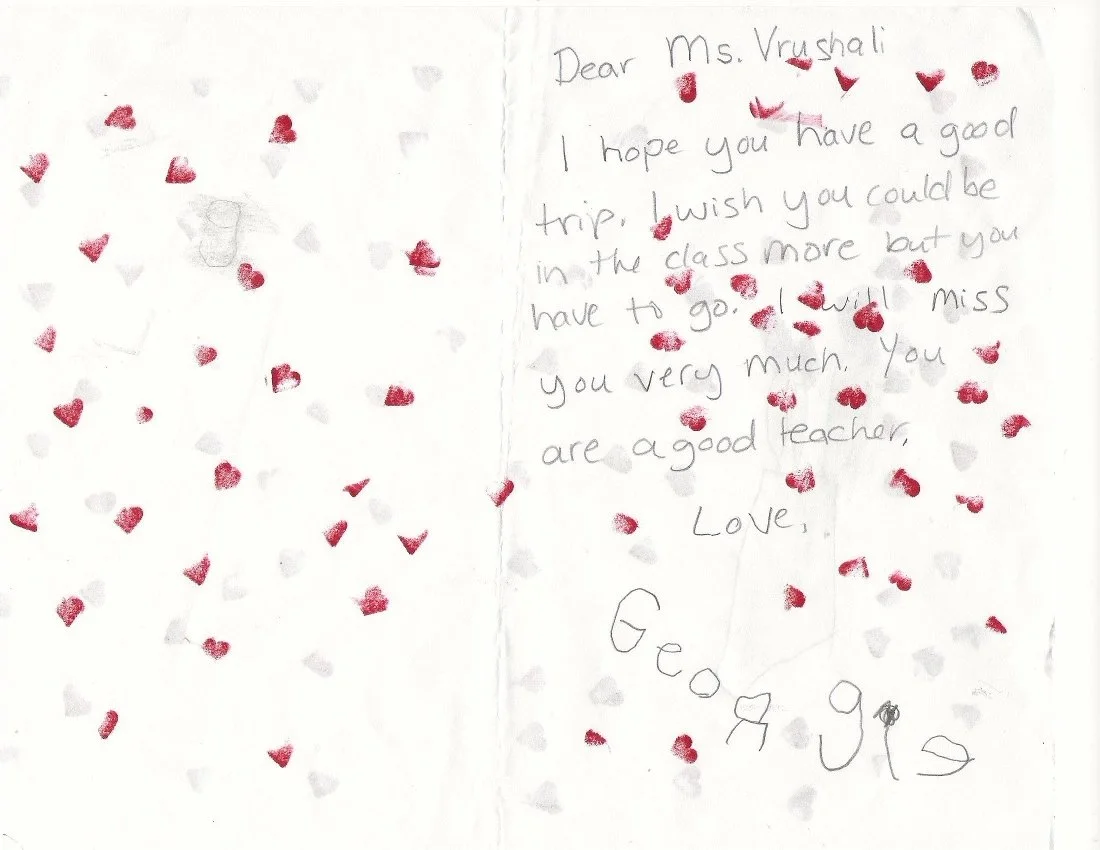 Dear Ms. Vrushali
I hope you have a good
trip. I wish you could be
in the class more but you
have to go. I will miss
you very much. You
are a good teacher.
Love,
Georgia
g